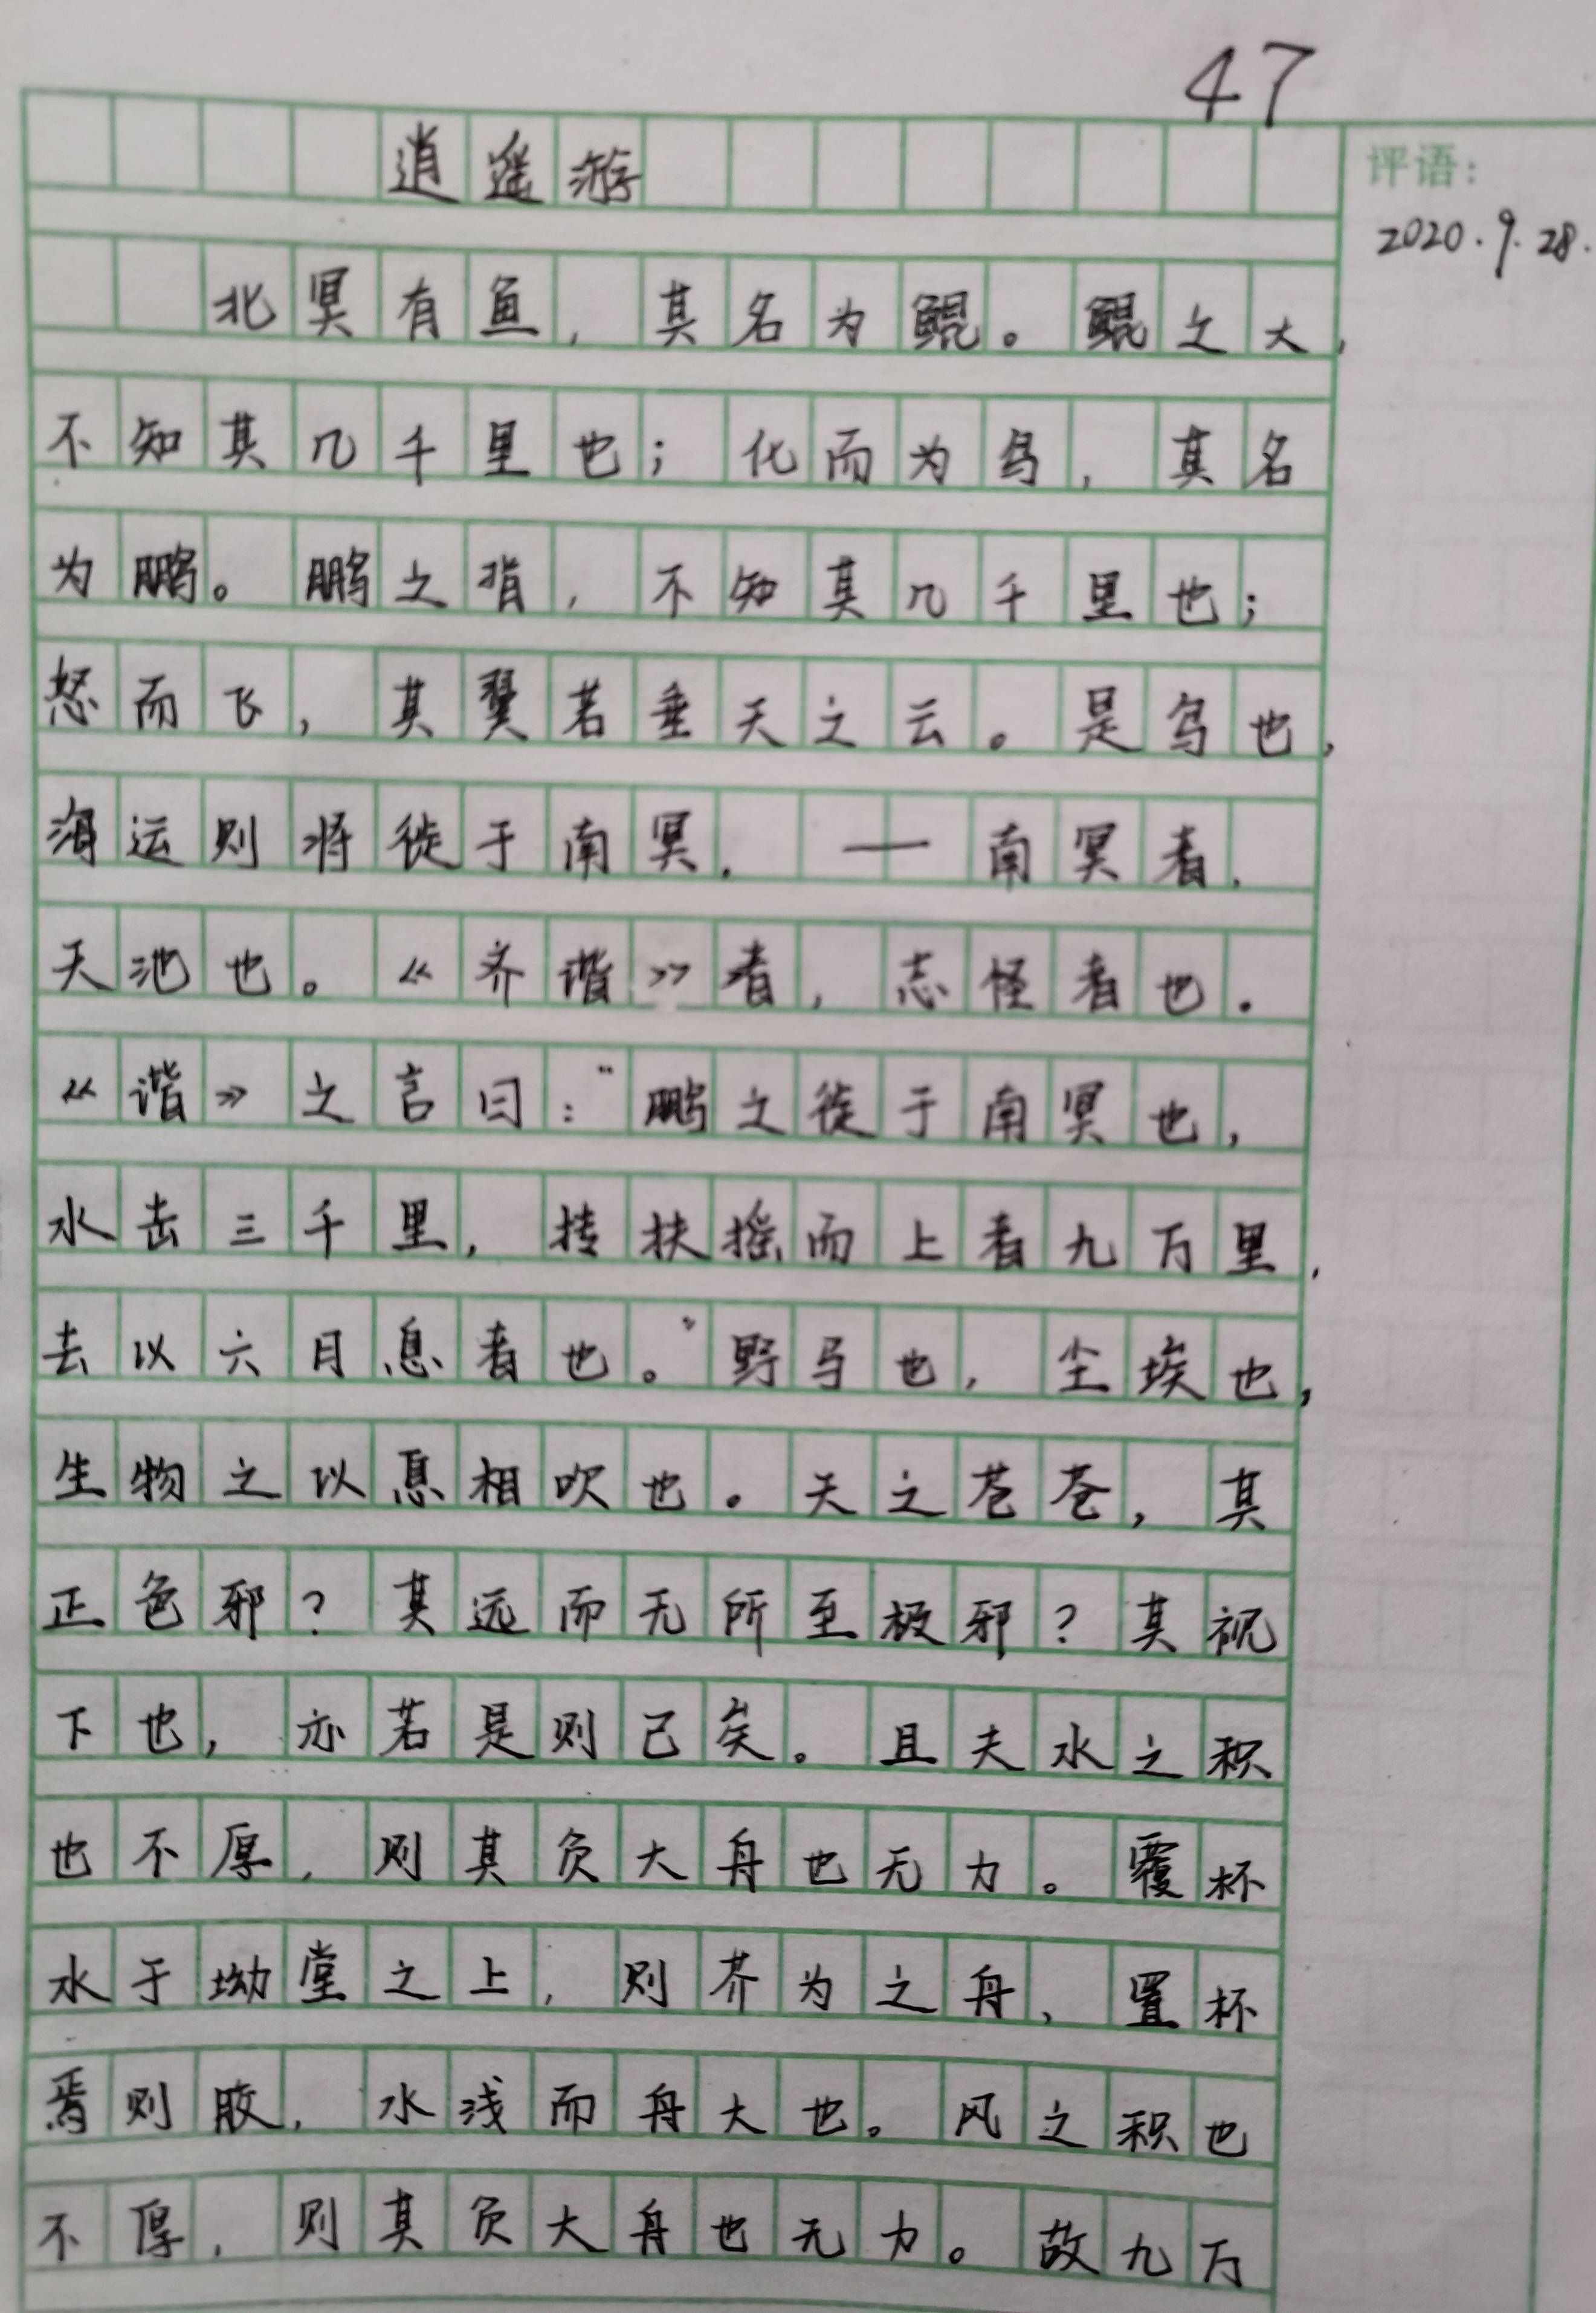 47
逍遥游
评语:
2020.9.28.
北冥有鱼,其名为鲲。鲲之大,
不知其几千里也;化而为鸟,其名
为鹏。鹏之背,不知其几千里也;
怒而飞,其翼若垂天之云。是鸟也,
海运则将徙于南冥.——南冥者,
天池也。《齐谐》者,志怪者也.
《谐》之言曰:“鹏之徙于南冥也,
水击三千里,抟扶摇而上者九万里,
去以六月息者也。”野马也,尘埃也,
生物之以息相吹也.天之苍苍,其
正色邪?其远而无所至极邪?其视
下也,亦若是则已矣。且夫水之积
也不厚,则其负大舟也无力。覆杯
水于坳堂之上,则芥为之舟,置杯
焉则胶,水浅而舟大也。风之积也
不厚,则其负大舟也无力。故九万